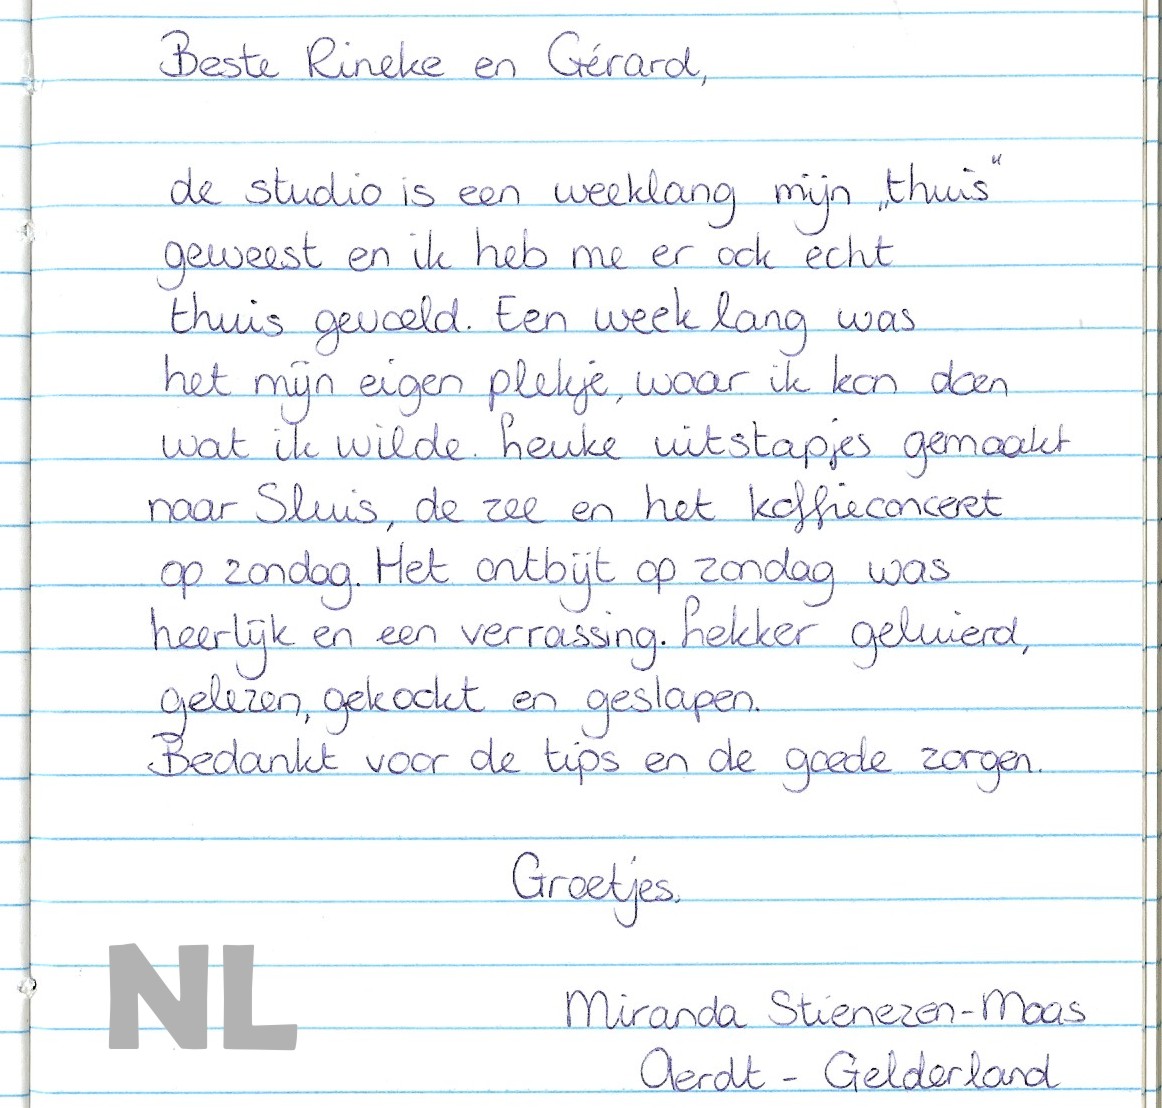 Beste Rineke en Gérard,
de studio is een weeklang mijn „thuis"
geweest en ik heb me er ook echt
thuis gevoeld. Een week lang was
het mijn eigen plekje, waar ik kon doen
wat ik wilde. Leuke uitstapjes gemaakt
naar Sluis, de zee en het koffieconcert
op zondag. Het ontbijt op zondag was
heerlijk en een verrassing. Lekker geluierd,
gelezen, gekookt en geslapen.
Bedankt voor de tips en de goede zorgen.
Groetjes.
NL
Miranda Stienezen-Maas
Aerdt - Gelderland